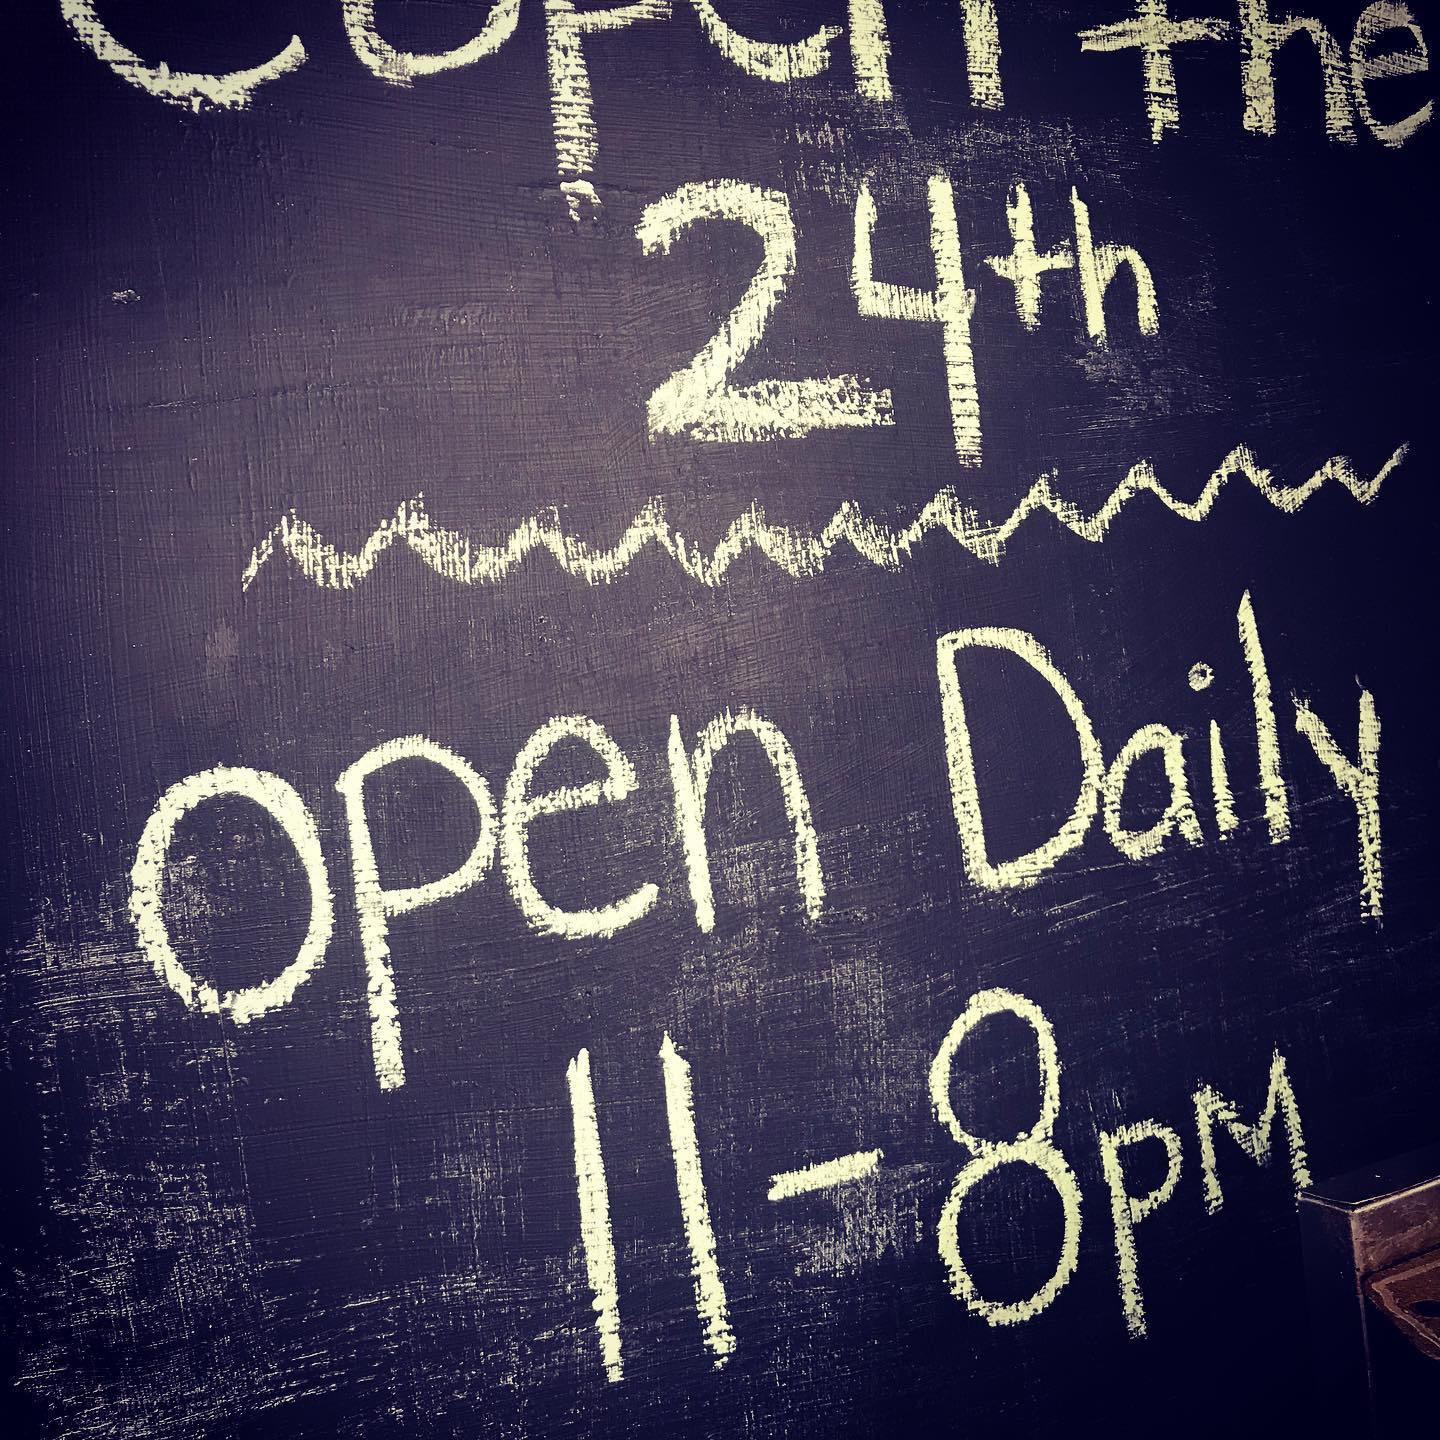 the
24th
open Daily
11-8pm